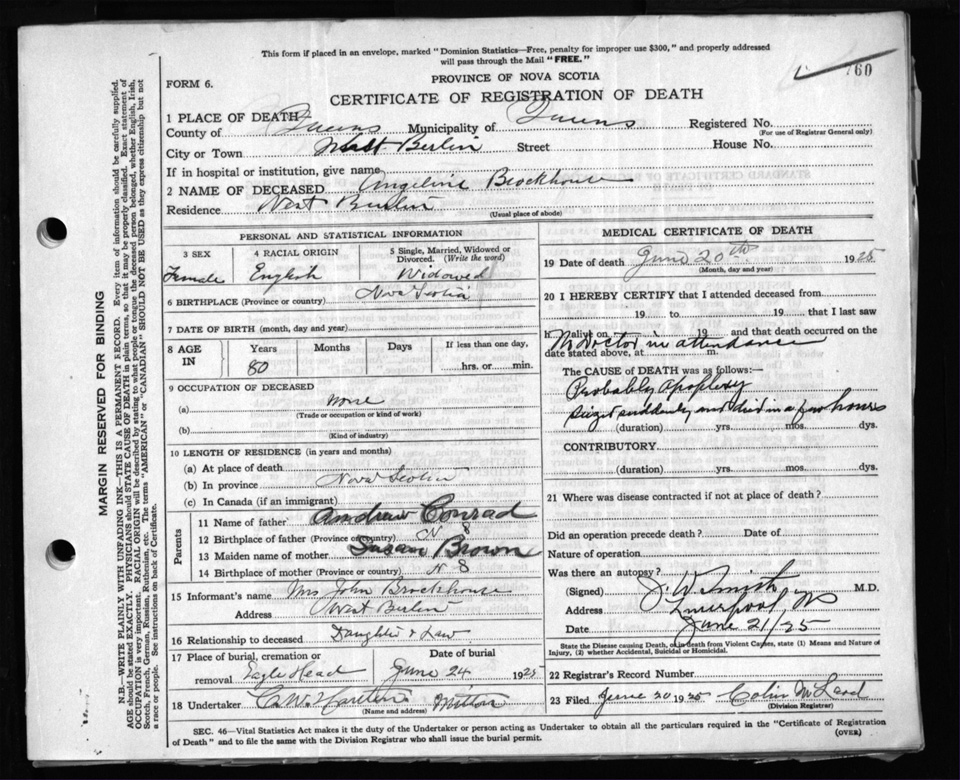 This form if placed in an envelope, marked "Dominion Statistics—Free, penalty for improper use $300," and properly addressed
will pass through the Mail "FREE."
760
PROVINCE OF NOVA SCOTIA
FORM 6.
CERTIFICATE OF REGISTRATION OF DEATH
1 PLACE OF DEATH
County of Queens Municipality of Queens Registered No.
(For use of Registrar General only)
City or Town West Berlin Street House No.
If in hospital or institution, give name
2 NAME OF DECEASED Angeline Brockhouse
Residence West Berlin
(Usual place of abode)
PERSONAL AND STATISTICAL INFORMATION
3 SEX 4 RACIAL ORIGIN 5 Single, Married, Widowed or
Divorced. (Write the word)
Female English Widowed
6 BIRTHPLACE (Province or country) Nova Scotia
7 DATE OF BIRTH (month, day and year)
8 AGE IN Years Months Days If less than one day,
80 hrs. or min.
9 OCCUPATION OF DECEASED
(a) None
(Trade or occupation or kind of work)
(b)
(Kind of industry)
10 LENGTH OF RESIDENCE (in years and months)
(a) At place of death
(b) In province Nova Scotia
(c) In Canada (if an immigrant)
Parents
11 Name of father Andrew Conrad
12 Birthplace of father (Province or country) N S
13 Maiden name of mother Susan Brown
14 Birthplace of mother (Province or country) N S
15 Informant's name Mrs John Brockhouse
Address West Berlin
16 Relationship to deceased Daughter n Law
17 Place of burial, cremation or Date of burial
removal Eagle Head June 24 1925
18 Undertaker Milton
(Name and address)
MEDICAL CERTIFICATE OF DEATH
19 Date of death June 20th 1925
(Month, day and year)
20 I HEREBY CERTIFY that I attended deceased from
19 to 19 that I last saw
h alive on 19 and that death occurred on the
No doctor in attendance
date stated above, at m.
The CAUSE of DEATH was as follows:
Probably Apoplexy
suddenly and died in a few hours
(duration) yrs. mos. dys.
CONTRIBUTORY.
(duration) yrs. mos. dys.
21 Where was disease contracted if not at place of death?
Did an operation precede death? Date of
Nature of operation
Was there an autopsy?
(Signed) J W Smith M.D.
Address Liverpool, NS
Date June 21/25
State the Disease causing Death, or in death from Violent Causes, state (1) Means and Nature of
Injury, (2) whether Accidental, Suicidal or Homicidal.
22 Registrar's Record Number
23 Filed June 20 1925 Colin McLeod
(Division Registrar)
SEC. 46—Vital Statistics Act makes it the duty of the Undertaker or person acting as Undertaker to obtain all the particulars required in the "Certificate of Registration
of Death" and to file the same with the Division Registrar who shall issue the burial permit.
(OVER)
MARGIN RESERVED FOR BINDING
N.B.—WRITE PLAINLY WITH UNFADING INK—THIS IS A PERMANENT RECORD. Every item of information should be carefully supplied.
AGE should be stated EXACTLY. PHYSICIANS should STATE CAUSE OF DEATH in plain terms, so that it may be properly classified. Exact statement of
OCCUPATION is very important. RACIAL ORIGIN will be described by stating to what people or tongue the deceased person belonged, whether English, Irish,
Scotch, French, German, Russian, Ruthenian, etc. The terms "AMERICAN" or "CANADIAN" SHOULD NOT BE USED as they express citizenship but not
a race or people. See instructions on back of Certificate.